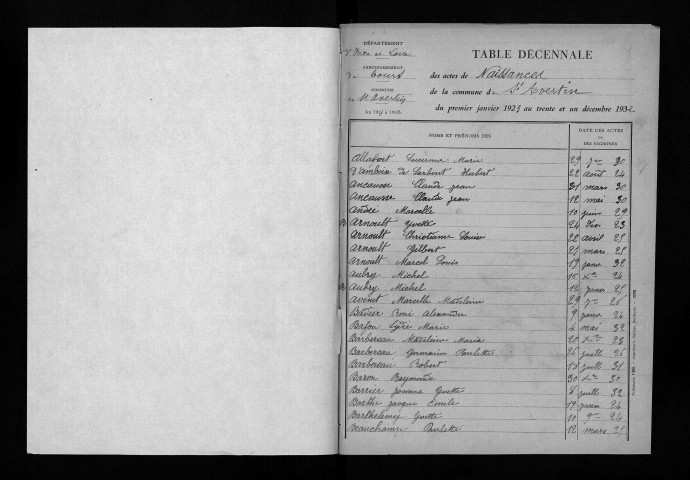 DÉPARTEMENT
d'Indre et Loire
ARRONDISSEMENT
de Tours
COMMUNE
de St Avertin
Au 1923 à 1932
TABLE DÉCENNALE
des actes de Naissances
de la commune de St Avertin
du premier janvier 1923 au trente et un décembre 1932
NOMS ET PRÉNOMS DES
DATE DES ACTES
OU
DES REGISTRES
Allafort Lucienne Marie 29 7bre 30
D'amboix de Larbont Hubert 22 août 24
Ancausse Claude Jean 31 mars 30
Ancausse Claude Jean 12 mai 30
André Marcelle 10 juin 29
Arnoult Yvette 24 fév 23
Arnoult Christiane Louise 22 avril 25
Arnoult Gilbert 27 mars 25
Arnoult Marcel Louis 19 janv 32
Aubry Michel 15 Xbre 24
Aubry Michel 12 janv 25
Avenet Marcelle Madeleine 29 7bre 26
Badier René Alexandre 9 janv 24
Bafou Lydie Marie 4 mai 32
Barbereau Madeleine Maria 20 Xbre 28
Barbereau Germaine Paulette 26 juill 26
Barbereau Robert 15 juill 31
Baron Raymonde 30 Xbre 30
Barrier Josiane Yvette 8 juill 32
Barthe Jacques Emile 17 janv 24
Barthelemy Yvette 10 9bre 24
Beauchamp Paulette 12 mars 25